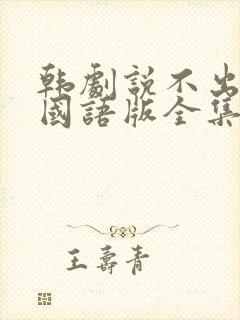 韩劇説不出
國語版全集
王壽青